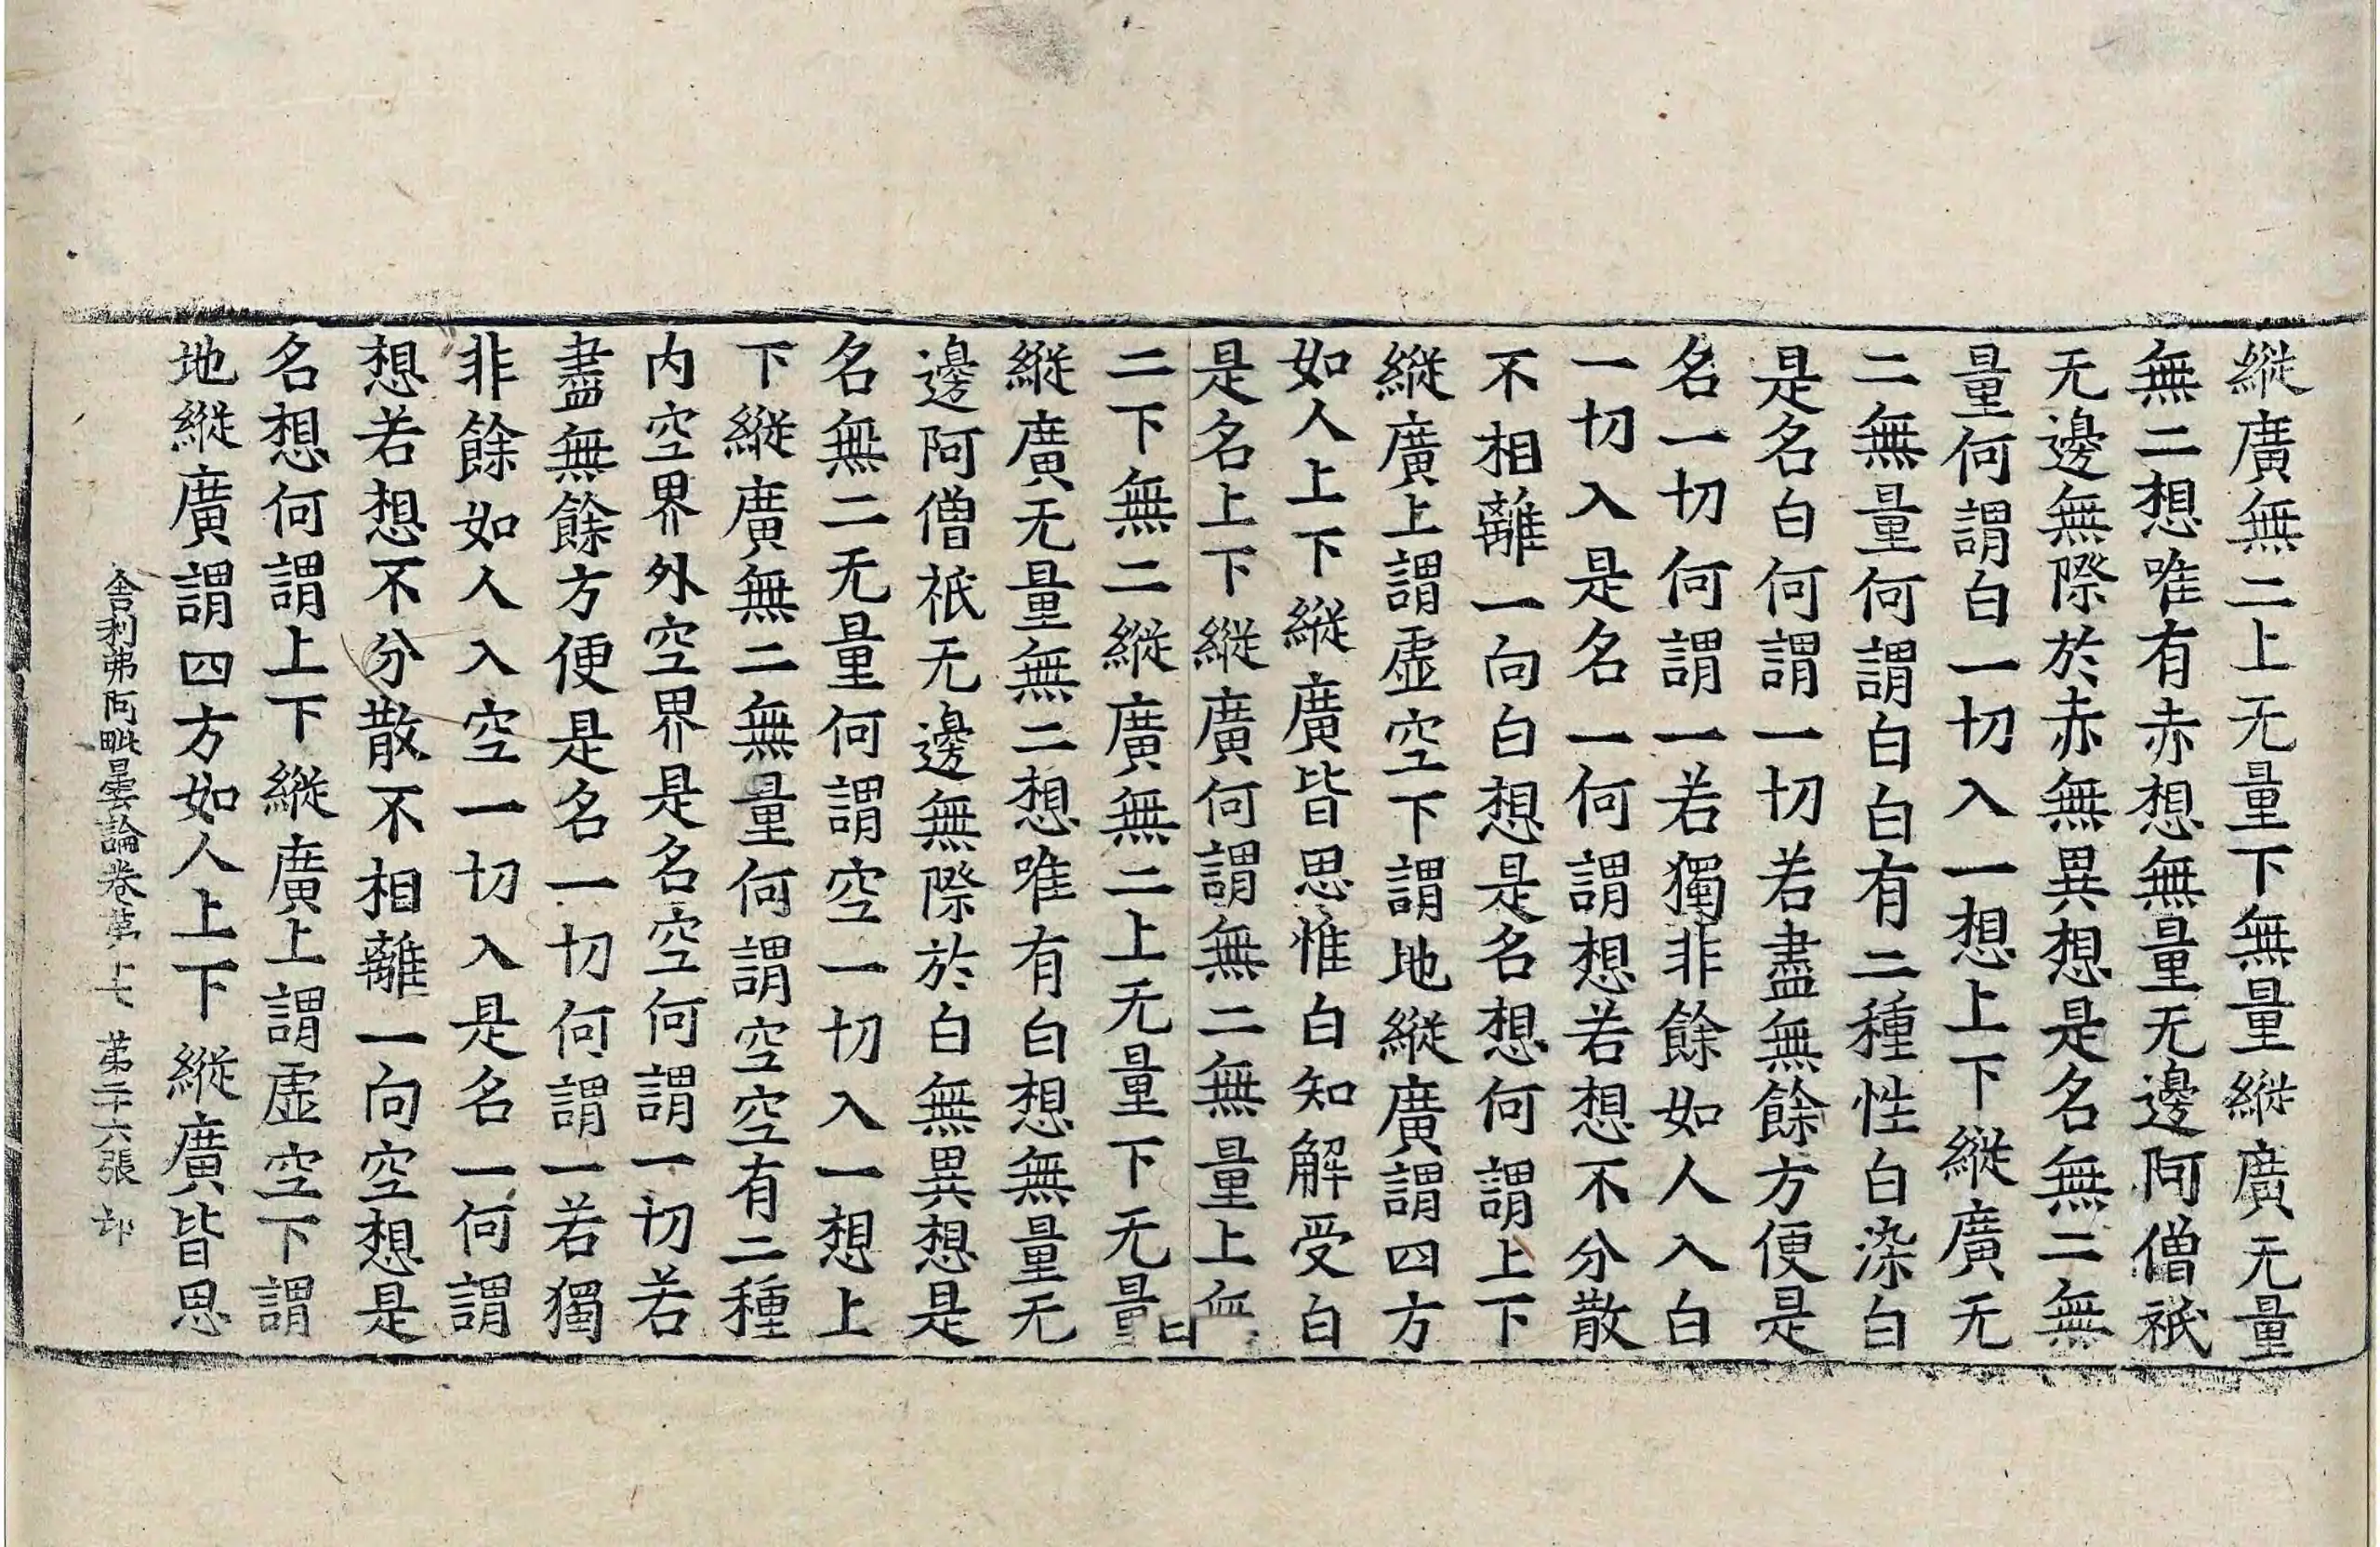 縱廣無二上无量下無量縱廣无量
無二想唯有赤想無量无邊阿僧祇
无邊無際於赤無異想是名無二無
量何謂白一切入一想上下縱廣无
二無量何謂白白有二種性白染白
是名白何謂一切若盡無餘方便是
名一切何謂一若獨非餘如人入白
一切入是名一何謂想若想不分散
不相離一向白想是名想何謂上下
縱廣上謂虛空下謂地縱廣謂四方
如人上下縱廣皆思惟白知解受白
是名上下縱廣何謂無二無量上無
二下無二縱廣無二上无量下无量
縱廣无量無二想唯有白想無量无
邊阿僧祇无邊無際於白無異想是
名無二无量何謂空一切入一想上
下縱廣無二無量何謂空空有二種
内空界外空界是名空何謂一切若
盡無餘方便是名一切何謂一若獨
非餘如人入空一切入是名一何謂
想若想不分散不相離一向空想是
名想何謂上下縱廣上謂虛空下謂
地縱廣謂四方如人上下縱廣皆思
舍利弗阿毗曇論卷第十六 第二十六張